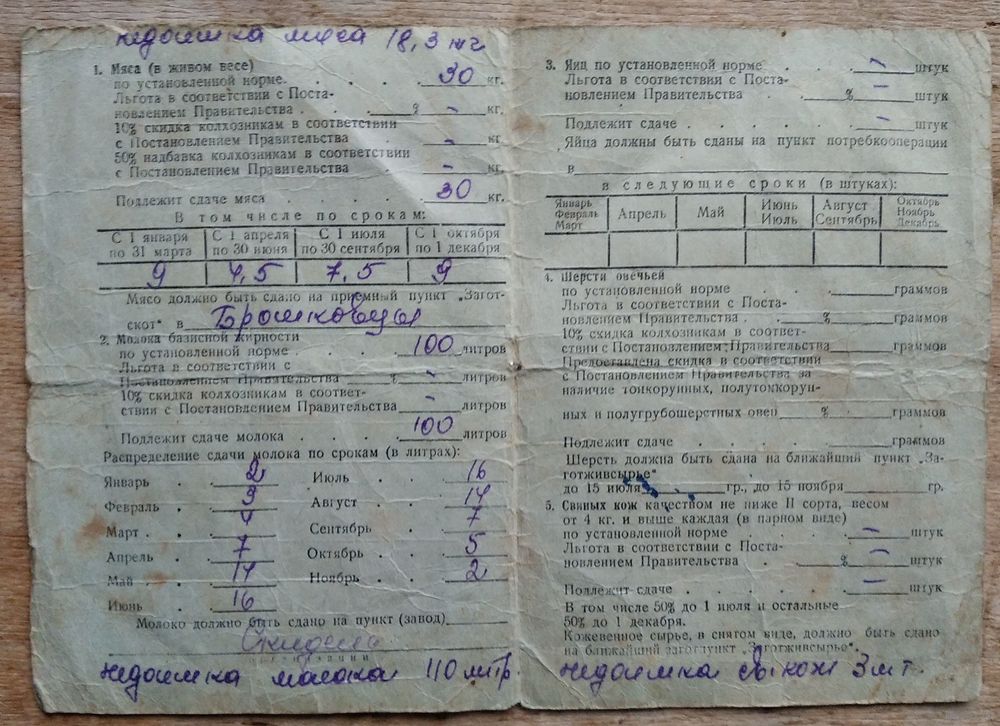 недоимка мяса 18,3 кг
1. Мяса (в живом весе)
по установленной норме. . . . 30 кг.
Льгота в соответствии с Поста-
новлением Правительства . . . % – кг.
10% скидка колхозникам в соответствии
с Постановлением Правительства – кг.
50% надбавка колхозникам в соответствии
с Постановлением Правительства – кг.
Подлежит сдаче мяса . . . . 30 кг.
В том числе по срокам:
С 1 января по 31 марта | С 1 апреля по 30 июня | С 1 июля по 30 сентября | С 1 октября по 1 декабря
9 | 4,5 | 7,5 | 9
Мясо должно быть сдано на приемный пункт „Загот-
скот" в
2. Молока базисной жирности
по установленной норме . . . . 100 литров
Льгота в соответствии с
Постановлением Правительства % – литров
10% скидка колхозникам в соответ-
ствии с Постановлением Правительства – литров
Подлежит сдаче молока . . . . 100 литров
Распределение сдачи молока по срокам (в литрах):
Январь . 2 Июль . . 16
Февраль . 3 Август . . 14
Март . . 4 Сентябрь . 7
Апрель . 7 Октябрь . 5
Май . . 14 Ноябрь . . 2
Июнь . . 16
Молоко должно быть сдано на пункт (завод)
недоимка молока 110 литр.
3. Яиц по установленной норме . . – штук
Льгота в соответствии с Поста-
новлением Правительства . . % – штук
Подлежит сдаче . . . . – штук
Яйца должны быть сданы на пункт потребкооперации
в
в следующие сроки (в штуках):
Январь Февраль Март | Апрель | Май | Июнь Июль | Август Сентябрь | Октябрь Ноябрь Декабрь
4. Шерсти овечьей
по установленной норме . . . граммов
Льгота в соответствии с Поста-
новлением Правительства . % граммов
10% скидка колхозникам в соответ-
ствии с Постановлением Правительства граммов
Предоставлена скидка в соответствии
с Постановлением Правительства за
наличие тонкорунных, полутонкорун-
ных и полугрубошерстных овец % граммов
Подлежит сдаче . . . . граммов
Шерсть должна быть сдана на ближайший пункт „За-
готживсырье"
до 15 июля гр., до 15 ноября гр.
5. Свиных кож качеством не ниже II сорта, весом
от 4 кг. и выше каждая (в парном виде)
по установленной норме . . . – штук
Льгота в соответствии с Поста-
новлением Правительства . . % – штук
Подлежит сдаче . . . . – штук
В том числе 50% до 1 июля и остальные
50% до 1 декабря.
Кожевенное сырье, в снятом виде, должно быть сдано
на ближайший заготпункт „Заготживсырье".
недоимка 3 шт.